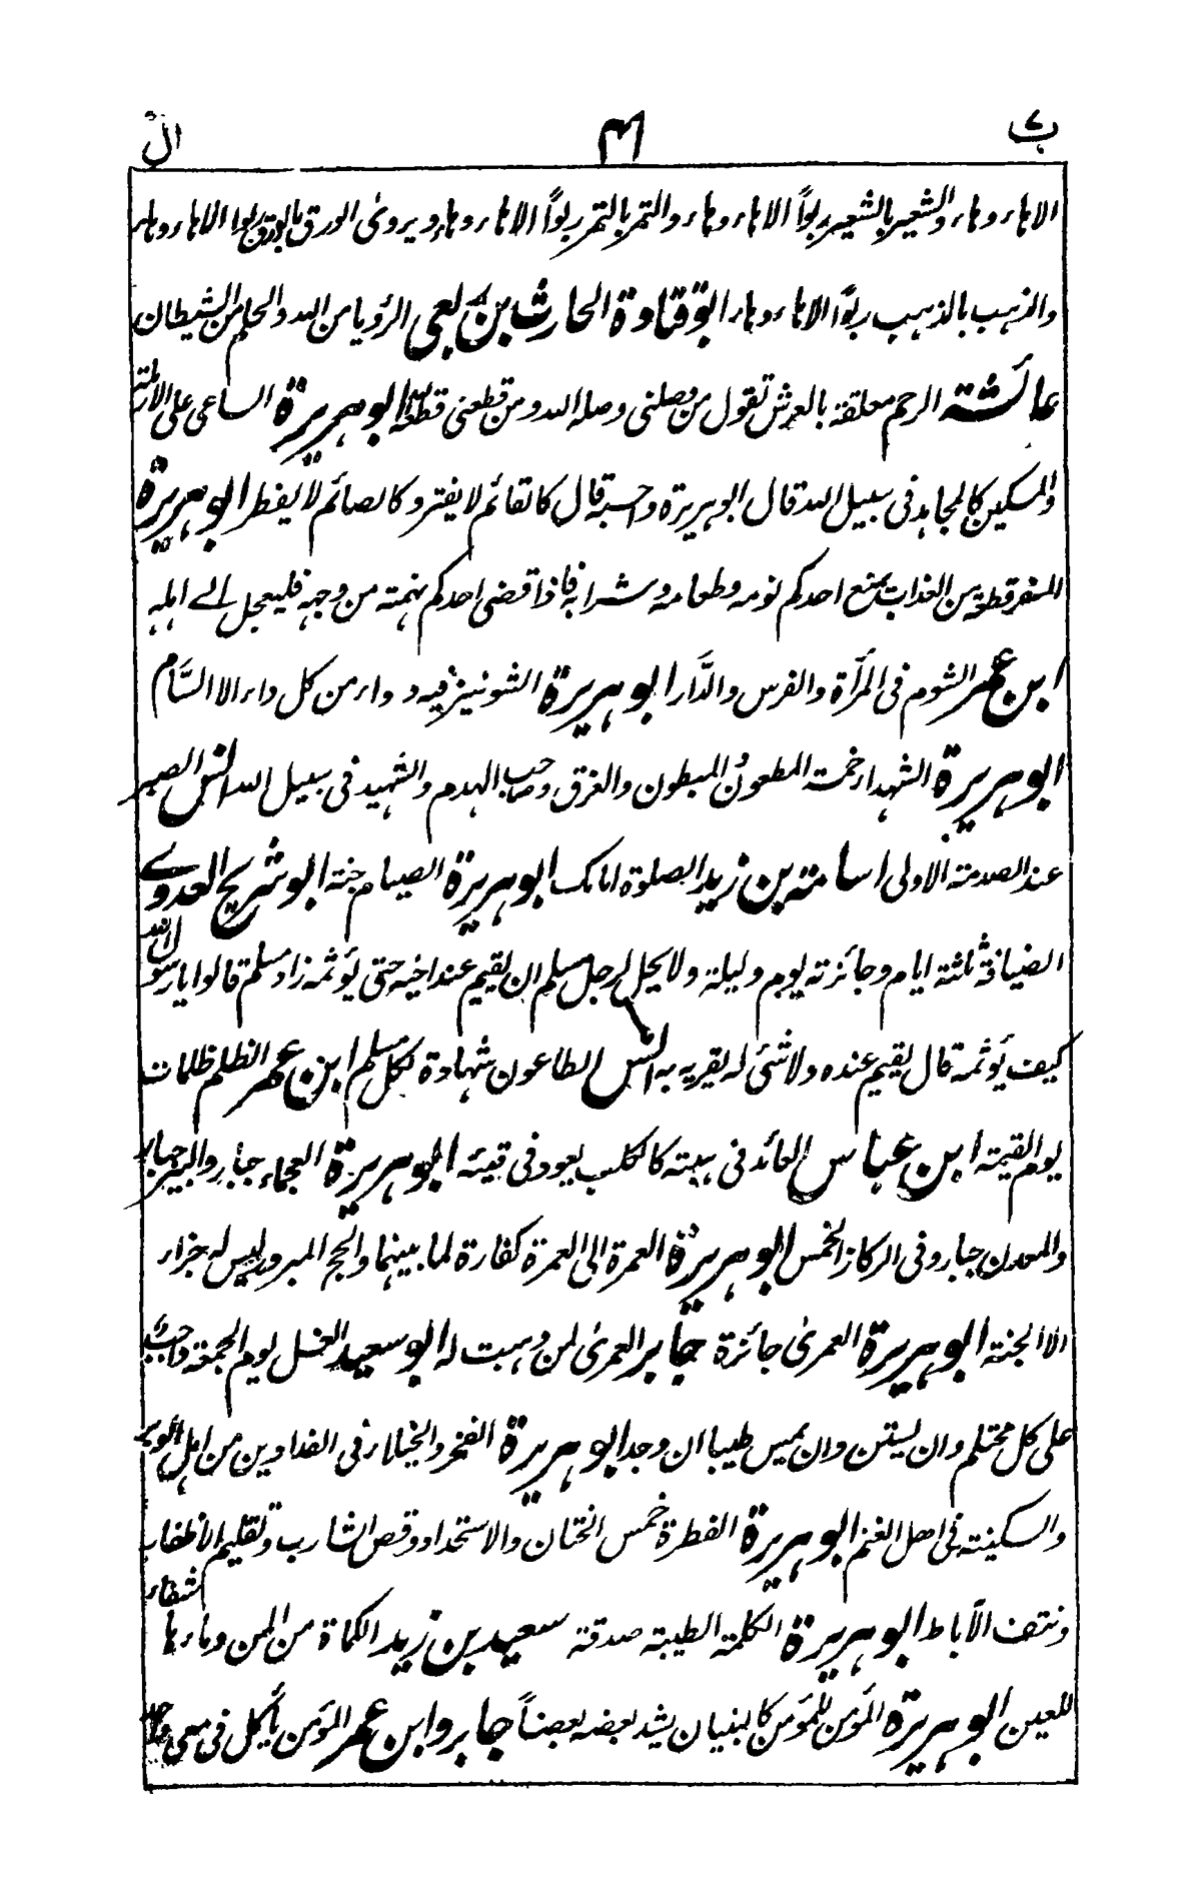 ب ٧ ٤١ ال
الا هاء وهاء والشعير بالشعير ربوًا الا هاء وهاء والتمر بالتمر ربوًا الا هاء وهاء ويروى الورق بالورق ربوا الا هاء وهاء
والذهب بالذهب ربوًا الا هاء وهاء ابو قتادة الحارث بن ربعى الرؤيا من الله والحلم من الشيطان
عائشة الرحم معلقة بالعرش تقول من وصلنى وصله الله ومن قطعنى قطعه الله ابو هريرة الساعى على الارملة
والمسكين كالمجاهد فى سبيل الله قال ابو هريرة واحسبه قال كالقائم لا يفتر وكالصائم لا يفطر ابو هريرة
السفر قطعة من العذاب يمنع احدكم نومه وطعامه وشرابه فاذا قضى احدكم نهمته من وجهه فليعجل الے اهله
ابن عمر الشوم فى المرأة والفرس والدَّار ابو هريرة الشونيز فيه دواء من كل داء الا السَّام
ابو هريرة الشهداء خمسة المطعون المبطون والغرق وصاحب الهدم والشهيد فى سبيل الله انس الصبر
عند الصدمة الاولى اسامة بن زيد الصلوة امامك ابو هريرة الصيام جنة ابو شريح العدوے
الضيافة ثلثة ايام وجائزته يوم وليلة ولا يحل لرجل مسلم ان يقيم عند اخيه حتى يؤثمه زاد مسلم قالوا يا رسول الله
كيف يؤثمه قال يقيم عنده ولا شئ له يقريه به انس الطاعون شهادة لكل مسلم ابن عمر الظلم ظلمات
يوم القيمة ابن عباس العائد فى هبته كالكلب يعود فى قيئه ابو هريرة العجماء جبار والبئر جبار
والمعدن جبار وفى الركاز الخمس ابو هريرة العمرة الى العمرة كفارة لما بينهما والحج المبرور ليس له جزاء
الا الجنة ابو هريرة العمرى جائزة جابر العمرى لمن وهبت له ابو سعيد الغسل يوم الجمعة واجب
على كل محتلم وان يستن وان يمس طيبا ان وجد ابو هريرة الفخر والخيلاء فى الفدادين من اهل الوبر
والسكينة فى اهل الغنم ابو هريرة الفطرة خمس الختان والاستحداد وقص الشارب وتقليم الاظفار
ونتف الآباط ابو هريرة الكلمة الطيبة صدقة سعيد بن زيد الكماة من المن وماءها شفاء
للعين ابو هريرة المؤمن للمؤمن كالبنيان يشد بعضه بعضاً جابر وابن عمر المؤمن يأكل فى معى واحد